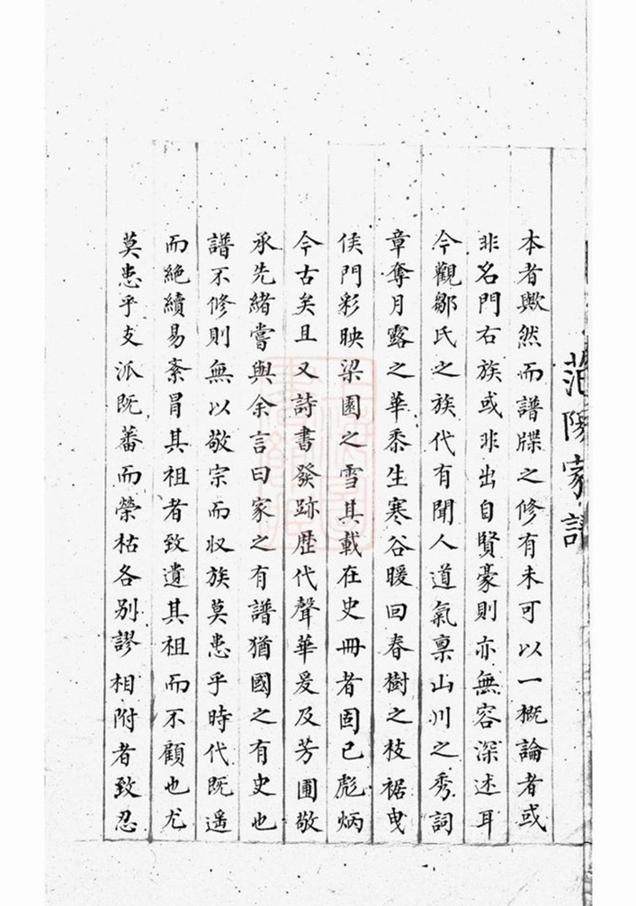 范陽家譜
本者歟然而譜牒之修有未可以一概論者或
非名門右族或非出自賢豪則亦無容深述耳
今觀鄒氏之族代有聞人道氣稟山川之秀詞
章奪月露之華黍生寒谷暖回春樹之枝裾曳
侯門彩映梁園之雪其載在史冊者固已彪炳
今古矣且又詩書發跡歷代聲華爰及芳圃敬
承先緒嘗與余言曰家之有譜猶國之有史也
譜不修則無以敬宗而収族莫患乎時代既遙
而絶續易紊冒其祖者致遺其祖而不顧也尤
莫患乎支派既蕃而榮枯各別謬相附者致忍